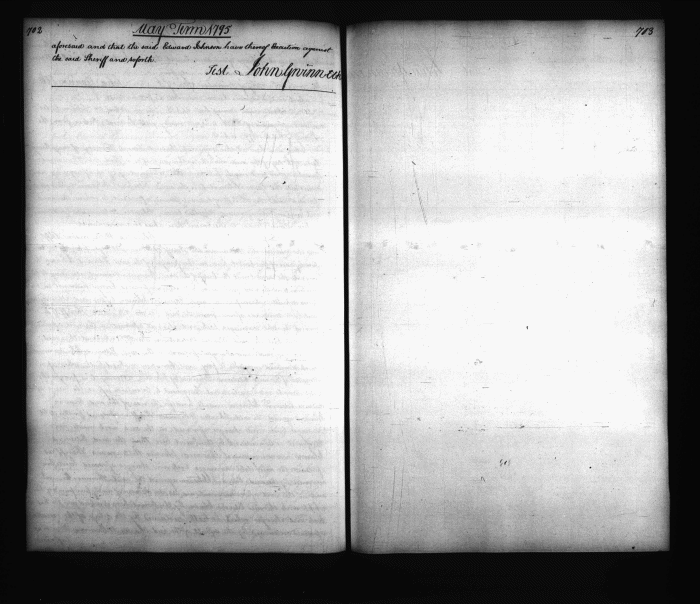 702
May Term 1795
aforesaid and that the said Edward Johnson have thereof Execution against
the said Sheriff and soforth.
Test John Gwinn Clk
703